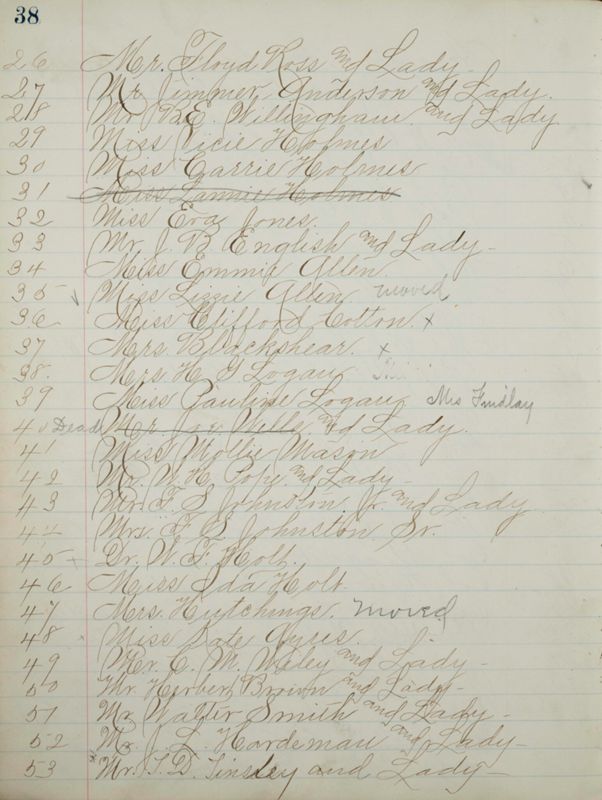 38
26 Mr. Floyd Ross and Lady
27 Mr Jimmer Anderson and Lady.
28 Mr B.E. Willingham and Lady
29 Miss Vicie Holmes
30 Miss Carrie Holmes
31 Miss Lannie Holmes
32 Miss Eva Jones.
33 Mr. J. B. English and Lady -
34 Miss Emmie Allen
35 Miss Lizzie Allen moved
36 Miss Clifford Cotton. x
37 Mrs. Blackshear. x
38. Mrs. H. G Logan
39 Miss Pauline Logan Mrs Findlay
40 Dead Mr. Joe Wells and Lady.
41 Miss Mollie Mason
42 Mr. W. H. Pope and Lady -
43 Mr. F. S Johnston Jr. and Lady
44 Mrs. F. S Johnston Sr.
45 Dr. W. F. Holt.
46 Miss Ida Holt
47 Mrs. Hutchings. moved
48 Miss Date Ayres.
49 Mr. C. M. Wiley and Lady -
50 Mr. Herbert Brown and Lady -
51 Mr Walter Smith and Lady -
52 Mr J. L. Hardeman and Lady -
53 x Mr. T. D. Tinsley and Lady -